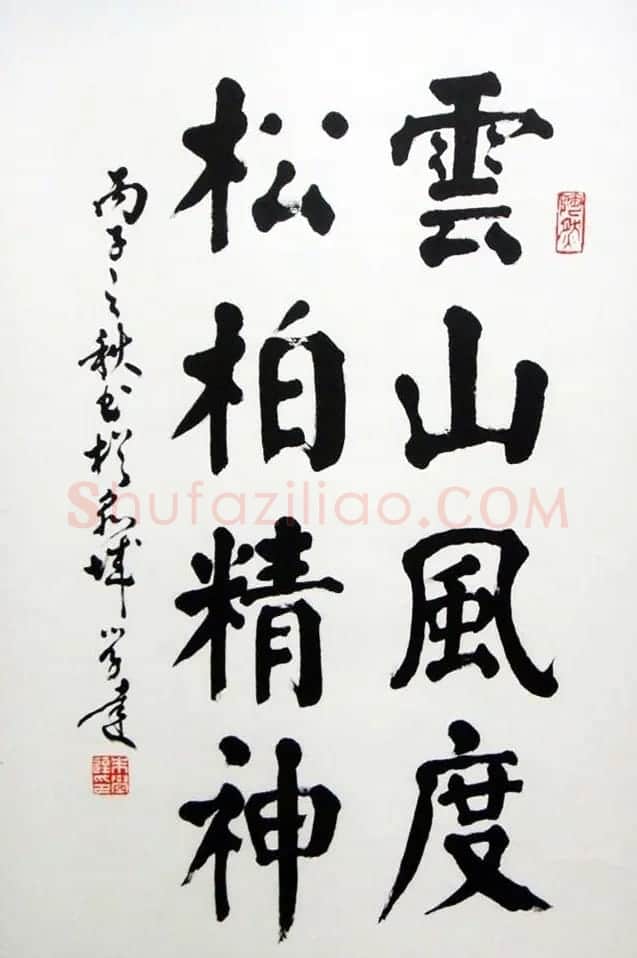 雲山風度
松柏精神
丙子之秋书於泉城学達
Shufaziliao.COM